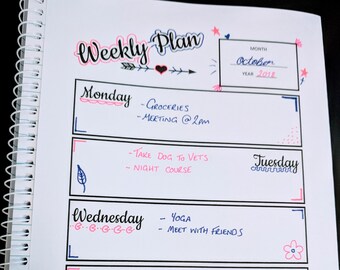 Weekly Plan
MONTH
October
YEAR 2018
Monday
- GROCERIES
- MEETING @ 2AM
- TAKE DOG TO VETS
- NIGHT COURSE
Tuesday
Wednesday
- YOGA
- MEET WITH FRIENDS